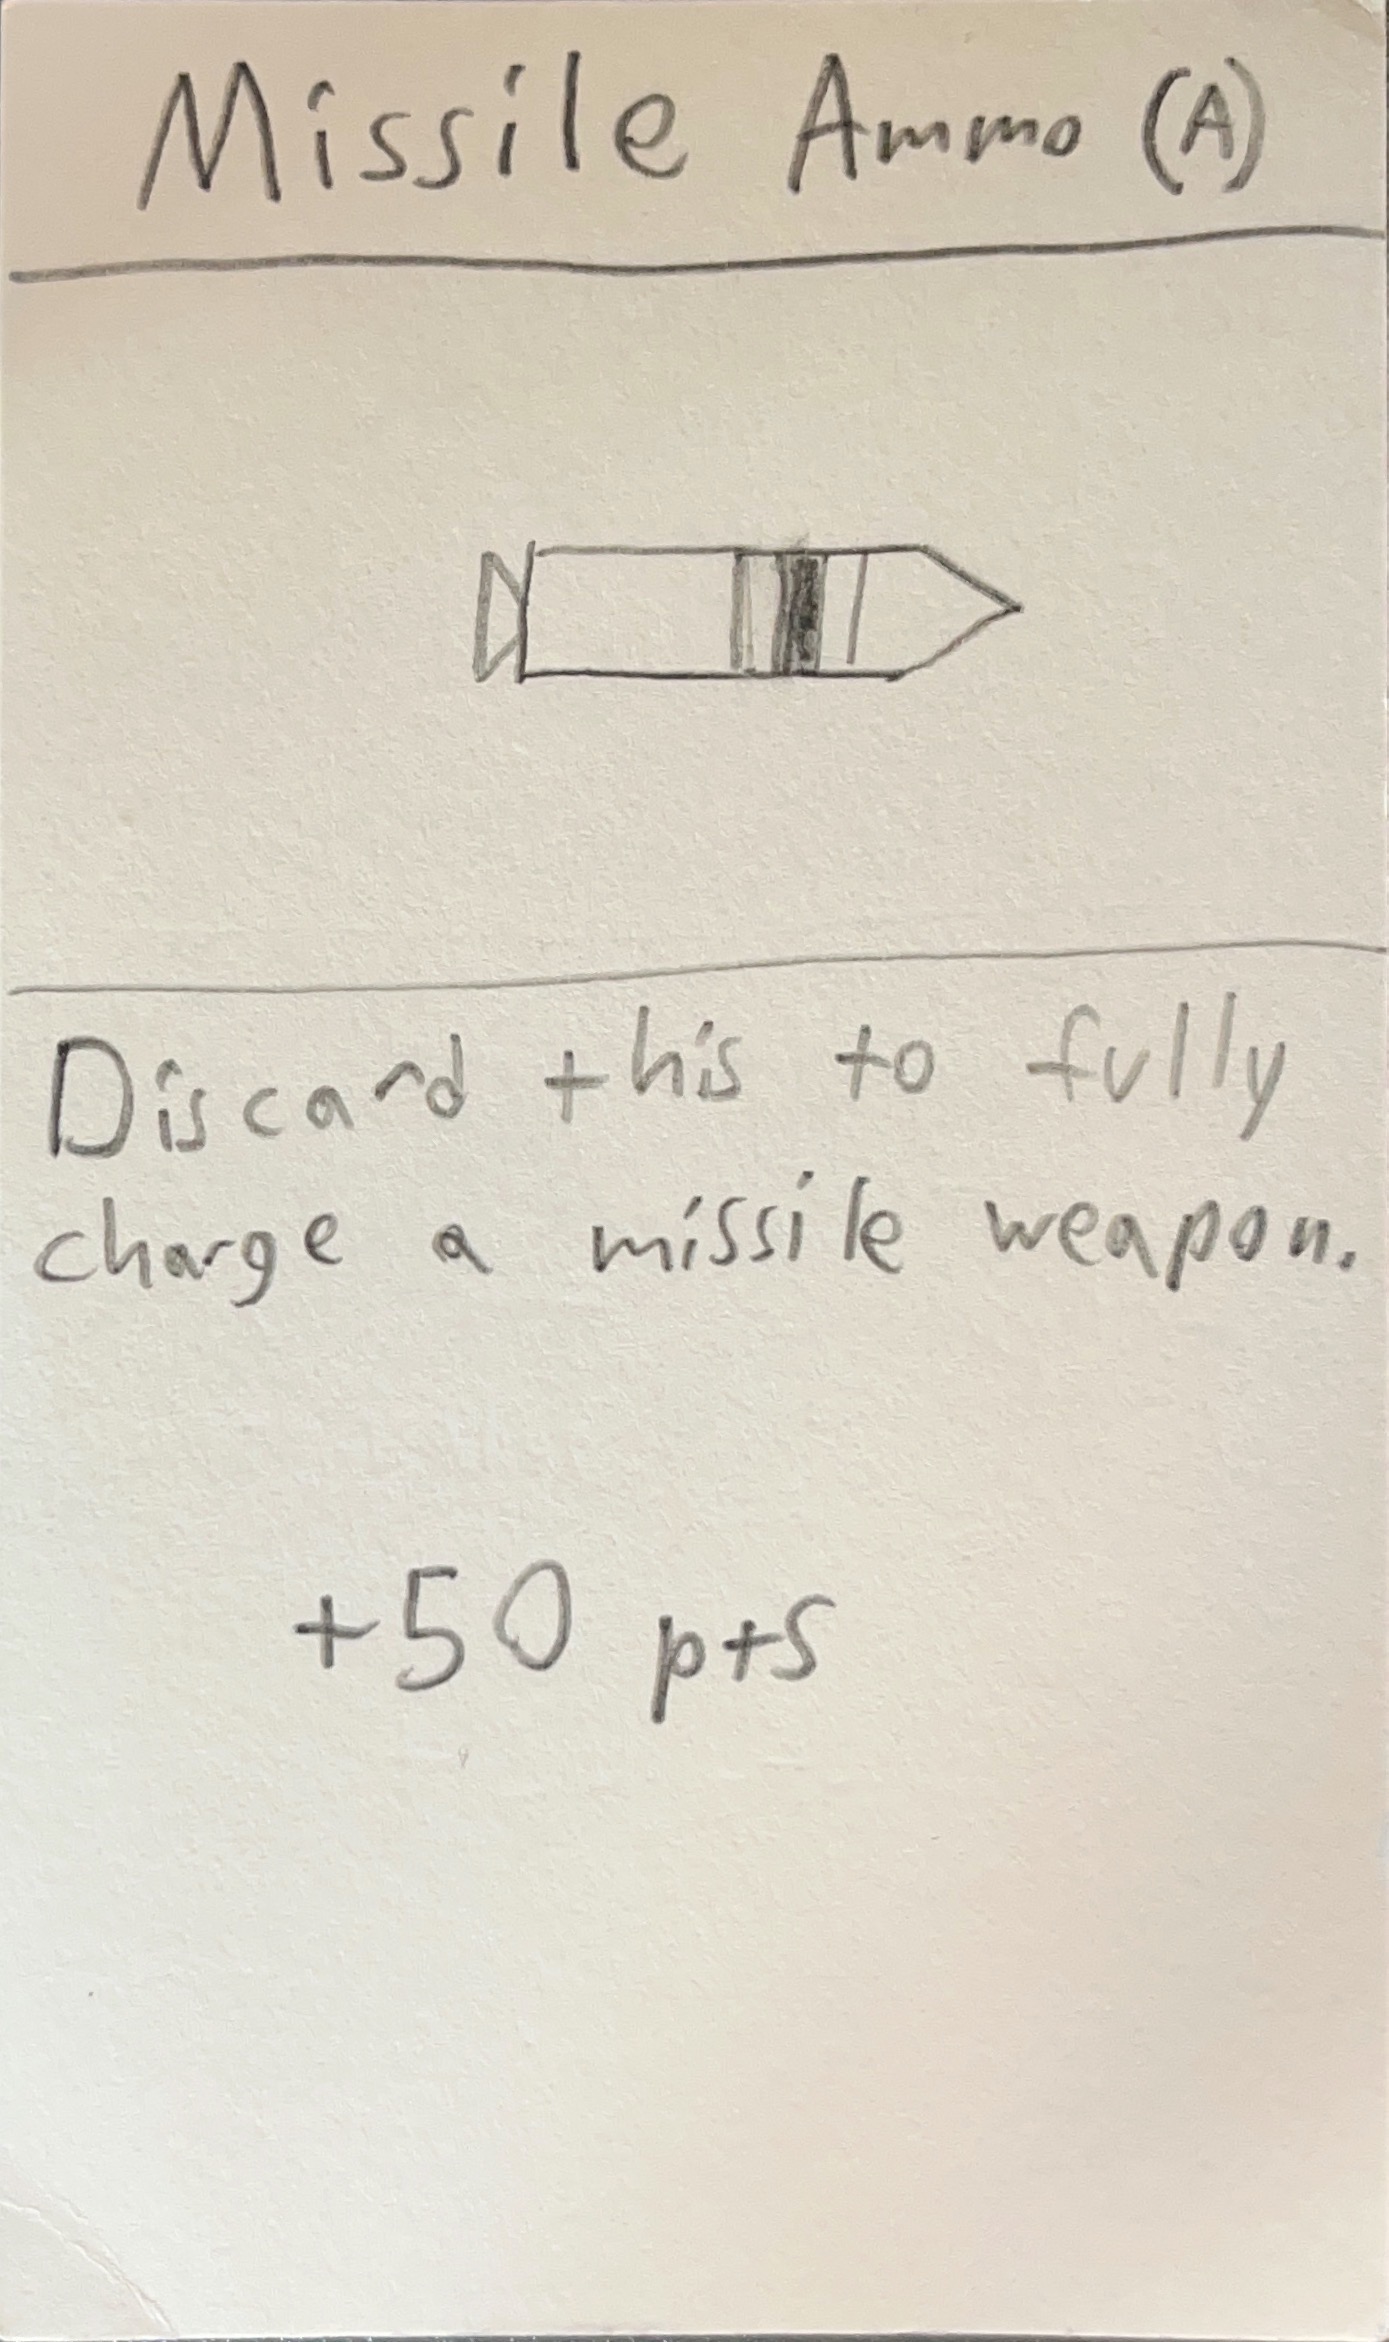 Missile Ammo (A)
Discard this to fully
charge a missile weapon.
+50 pts